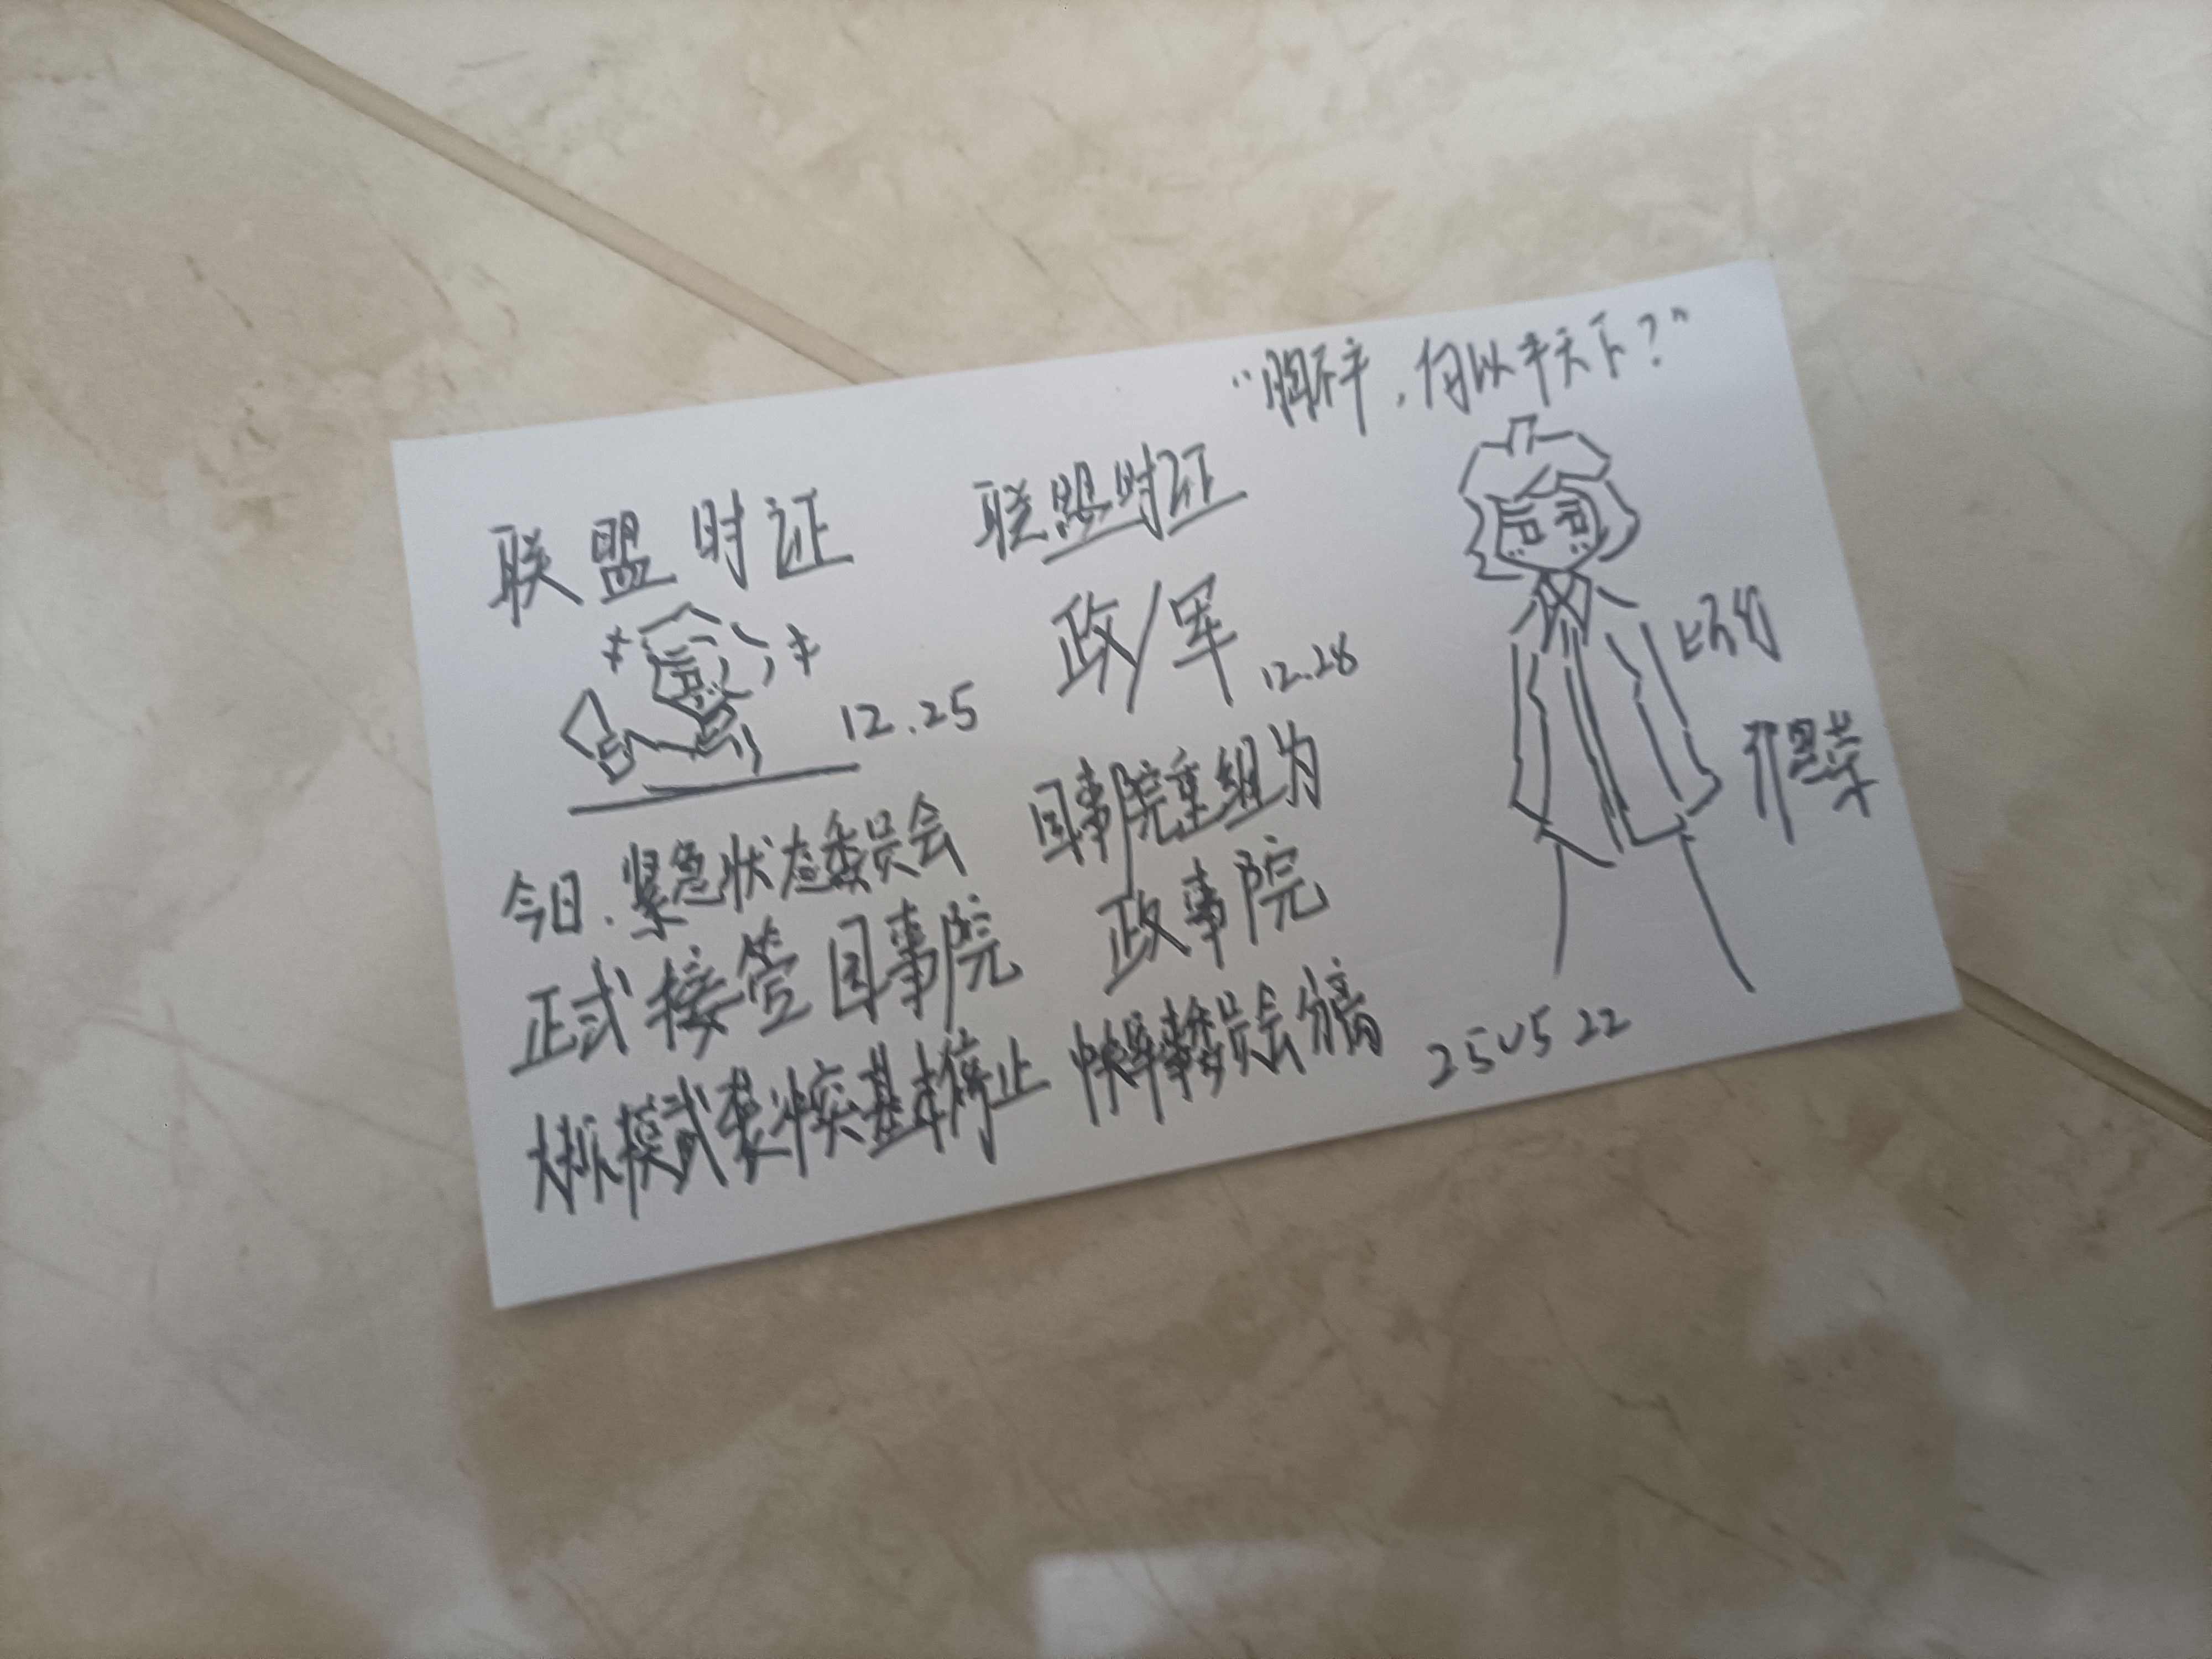 联盟时证
12.25
今日.紧急状态委员会
正式接管国事院
大规模武装冲突基本停止
联盟时证
政/军
12.28
国事院重组为
政事院
中央军事委员会分离
"胸不平,何以平天下?"
250522